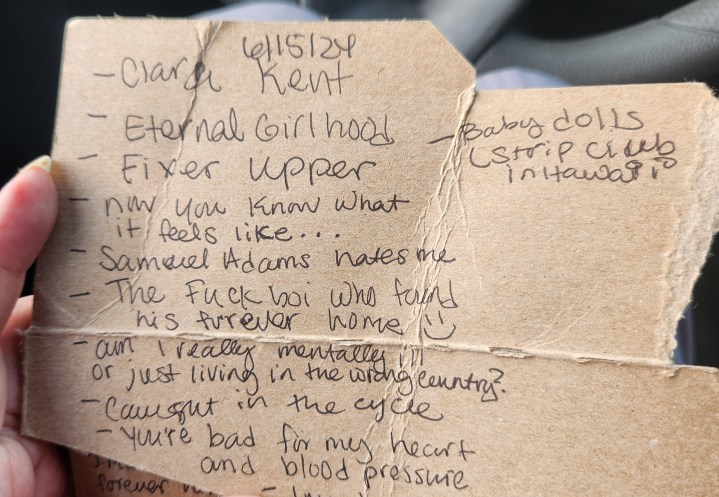 6/15/24
- Clara Kent
- Eternal Girlhood
- Fixer upper
- now you know what
it feels like...
- Samuel Adams hates me
- The Fuck boi who found
his furever home :)
- am I really mentally ill
or just living in the wrong country?
- Caught in the cycle
- you're bad for my heart
and blood pressure
forever
- Baby dolls
(strip club
in Hawaii